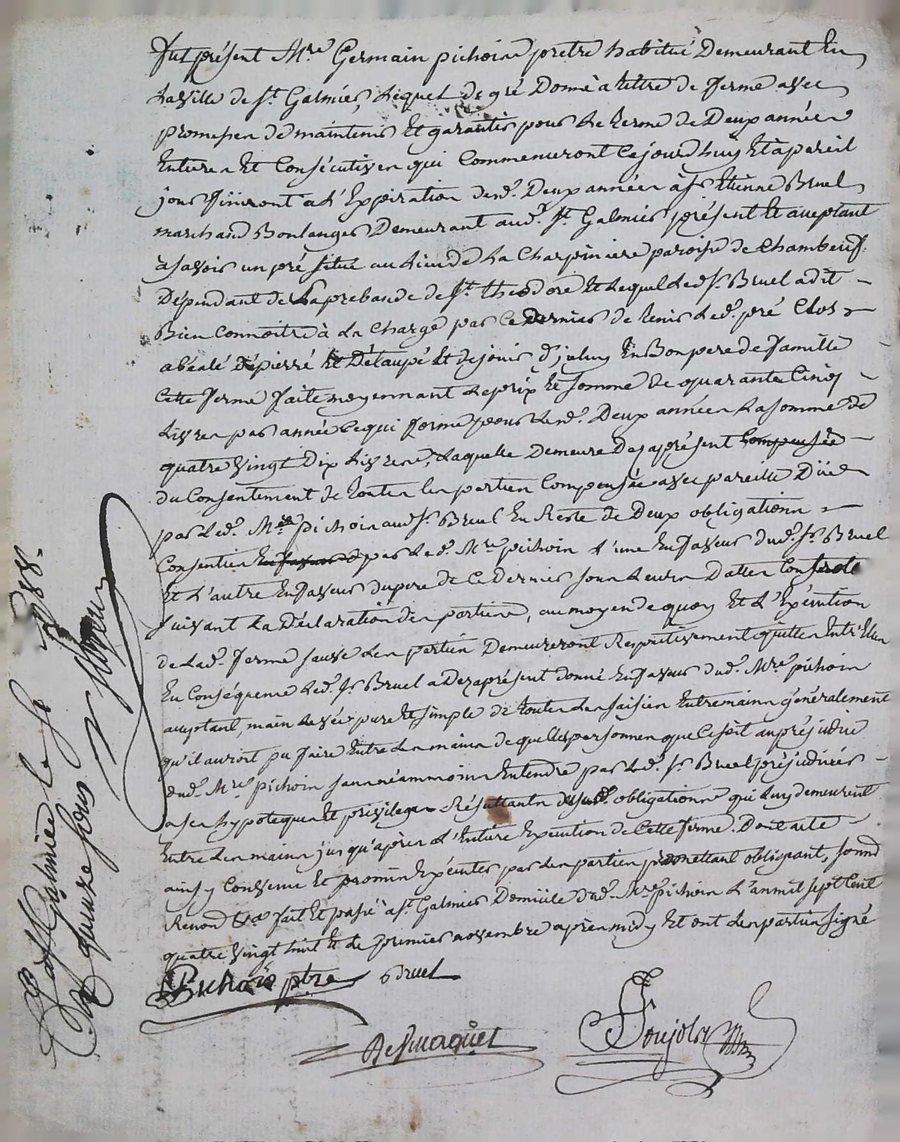 fut présent Mre Germain pichoin pretre habitué Demeurant En
La ville de St Galmier, Lequel de gré Donne a titre de ferme avec
promesse de maintenir Et garantir pour Le terme de Deux années
Entieres Et Consécutives qui Commenceront Cejourdhuy Et a pareil
jour finiront a L'Expiration desd. Deux années à Sr Etienne Bruel
marchand Boulanger Demeurant aud. St Galmier présent Et acceptant
a savoir un pré situé au Lieu de La Charpiniere paroisse de Chambeuf
Dépendant de La prebande de St theodore Et Lequel Led. Sr Bruel a dit
Bien Connoitre à La Charge par Ce Dernier de tenir Led. pré Clos
a béalé Epierré Et Détaupé Et de jouir d'iceluy En Bon pere de famille
Cette ferme faite moyennant Le prix Et Somme de quarante Cinq
Livres par année Ce qui forme pour Lesd. Deux années La somme de
quatre vingt Dix Livres, Laquelle Demeure Des apresent Compensée
du Consentement de toutes Les parties Compensée avec pareille Düe
par Led. Mre pichoin aud. Sr Bruel En Reste de Deux obligations
Consenties En faveur par Led. Mre pichoin L'une En faveur dud. Sr Bruel
Et L'autre En faveur du pere de Ce Dernier sous Leurs Dattes
suivant La Déclaration des parties, au moyen de quoy Et L'Exécution
de Lad. ferme sauve Les parties Demeureront Respectivement quittes Entr'Elles
En Conséquence Led. Sr Bruel a Dez apresent donné En faveur dud. Mre pichoin
acceptant, main Levée pure Et simple de toutes Les saisies Entre mains généralement
qu'il auroit pu faire Entre Les mains de quelles personnes que Ce soit au préjudice
dud. Mre pichoin sans néammoins Entendre par Led. Sr Bruel préjudicier
a ses hypoteques Et privileges Résultants desd. obligations qui Luy demeurent
Entre Les mains jusqu'après L'Entiere Exécution de Cette ferme. Dont acte
ainsy Convenu Et promis Exécuter par Les parties promettant obligeant, soumd
Renond &a fait Et passé a St Galmier Domicile dud. Mre pichoin L'an mil sept Cent
quatre vingt huit Et Le premier novembre après midy Et ont Les parties signé
Pichoin ptre Bruel
Desmaquet
Poujol
Cé a St Galmier Le 1788.
quinze sous